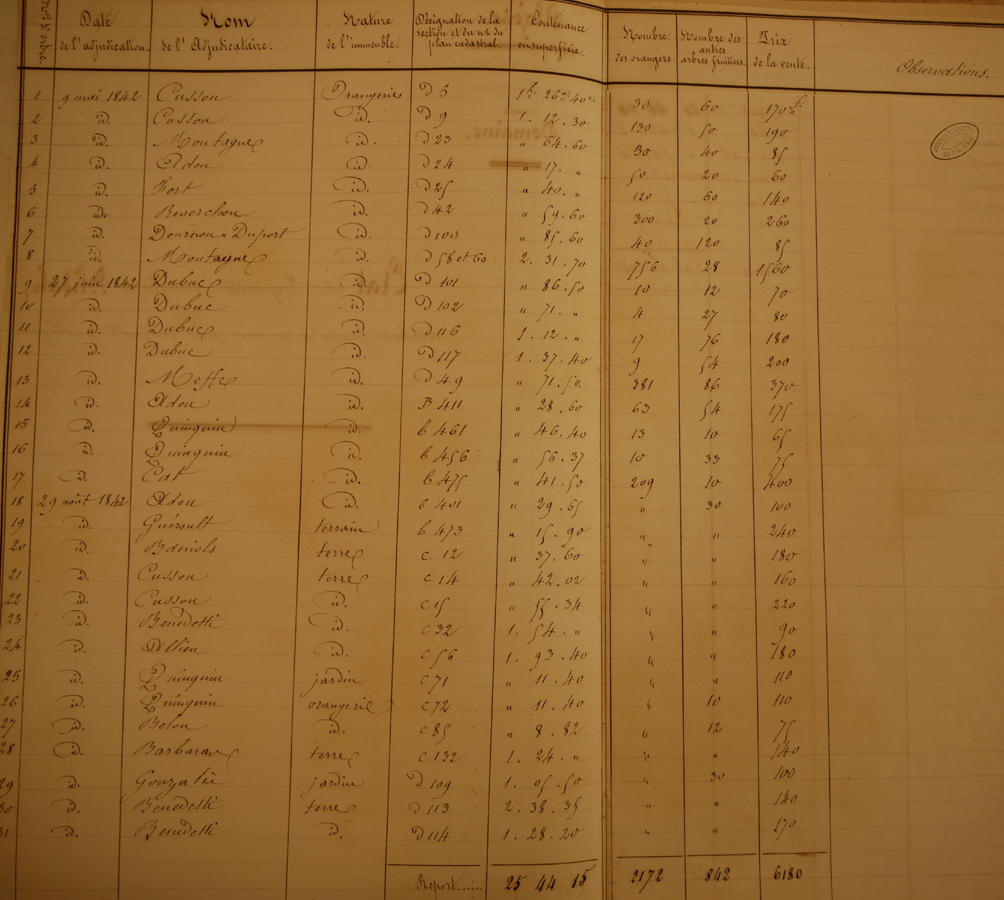 Nos d'ordre. Date de l'adjudication. Nom de l'Adjudicataire. Nature de l'immeuble. Désignation de la section et du no du plan cadastral. Contenance en superficie. Nombre des orangers Nombre des autres arbres fruitiers. Prix de la vente. Observations.
1 9 mai 1842 Cusson Orangerie D 5 1h. 26a. 40c. 30 60 170f.
2 id. Cusson id. D 9 1. 12. 30 130 50 190
3 id. Montagne id. D 23 " 64. 60 30 40 85
4 id. Adon id. D 24 " 17. " 50 20 60
5 id. Fort id. D 25 " 40. " 120 60 140
6 id. Beverchon id. D 42 " 59. 60 300 20 260
7 id. Dournon-Duport id. D 100 " 85. 60 40 120 85
8 id. Montagne id. D 58 et 60 2. 31. 70 756 28 1560
9 27 juin 1842 Dubuc id. D 101 " 86. 50 10 12 70
10 id. Dubuc id. D 102 " 71. " 4 27 80
11 id. Dubuc id. D 116 1. 12. " 17 76 180
12 id. Dubuc id. D 117 1. 37. 40 9 54 200
13 id. Meffre id. D 49 " 71. 50 381 86 370
14 id. Adon id. B 411 " 28. 60 63 54 175
15 id. Quinquin id. b 461 " 46. 40 13 10 65
16 id. Quinquin id. b 456 " 56. 37 10 33 75
17 id. Cat id. b 475 " 41. 50 209 10 400
18 29 août 1842 Adon id. b 401 " 29. 65 " 30 100
19 id. Guéroult terrain b 473 " 15. 90 " " 240
20 id. terre c 12 " 37. 60 " " 180
21 id. Cusson terre c 14 " 42. 02 " " 160
22 id. Cusson id. c 15 " 55. 34 " " 220
23 id. Bénédetti id. c 32 1. 54. " " " 90
24 id. id. c 56 1. 93. 40 " " 180
25 id. Quinquin jardin c 71 " 11. 40 " " 110
26 id. Quinquin orangerie c 72 " 11. 40 " 10 110
27 id. Belon id. c 85 " 8. 82 " 12 75
28 id. Barbaras terre c 132 1. 24. " " " 140
29 id. Gonzalès jardin D 109 1. 05. 50 " 30 100
30 id. Bénédetti terre D 113 2. 38. 35 " " 140
31 id. Bénédetti id. D 114 1. 28. 20 " " 170
Report...... 25 44 15 2172 842 6180